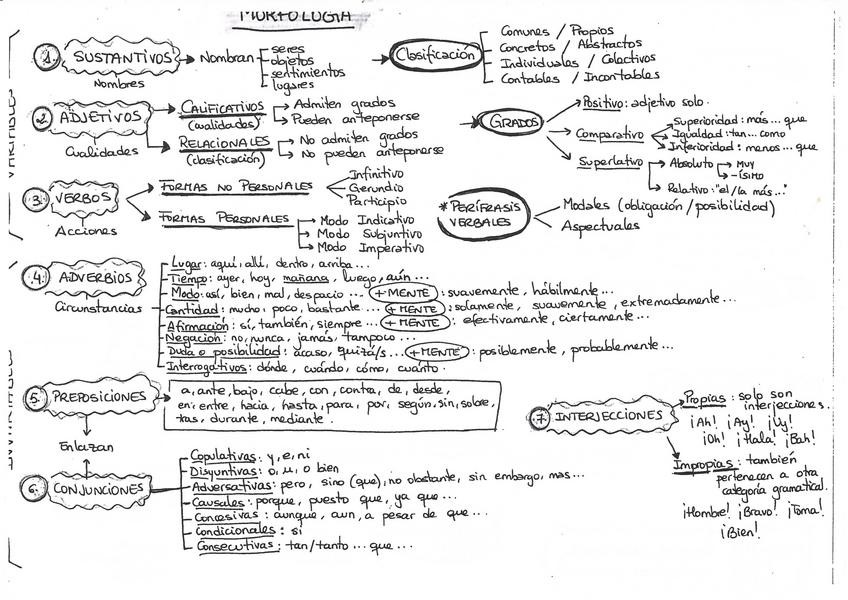 MORFOLOGÍA
VARIABLES
1. SUSTANTIVOS
Nombres
Nombran
seres
objetos
sentimientos
lugares
Clasificación
Comunes / Propios
Concretos / Abstractos
Individuales / Colectivos
Contables / Incontables
2. ADJETIVOS
Cualidades
CALIFICATIVOS
(cualidades)
Admiten grados
Pueden anteponerse
RELACIONALES
(clasificación)
No admiten grados
No pueden anteponerse
GRADOS
Positivo: adjetivo solo.
Comparativo
Superioridad: más... que
Igualdad: tan... como
Inferioridad: menos... que
Superlativo
Absoluto
MUY
-ÍSIMO
Relativo: "el/la más..."
3. VERBOS
Acciones
FORMAS NO PERSONALES
Infinitivo
Gerundio
Participio
FORMAS PERSONALES
Modo Indicativo
Modo Subjuntivo
Modo Imperativo
* PERÍFRASIS
VERBALES
Modales (obligación / posibilidad)
Aspectuales
4. ADVERBIOS
Circunstancias
Lugar: aquí, allí, dentro, arriba...
Tiempo: ayer, hoy, mañana, luego, aún ...
Modo: así, bien, mal, despacio ... +MENTE : suavemente, hábilmente...
Cantidad: mucho, poco, bastante ... +MENTE : solamente, suavemente, extremadamente...
Afirmación: sí, también, siempre ... +MENTE : efectivamente, ciertamente...
Negación: no, nunca, jamás, tampoco ...
Duda o posibilidad: acaso, quizá/s ... +MENTE : posiblemente, probablemente...
Interrogativos: dónde, cuándo, cómo, cuánto.
5. PREPOSICIONES
a, ante, bajo, cabe, con, contra, de, desde,
en, entre, hacia, hasta, para, por, según, sin, sobre,
tras, durante, mediante.
Enlazan
6. CONJUNCIONES
Copulativas: y, e, ni
Disyuntivas: o, u, o bien
Adversativas: pero, sino (que), no obstante, sin embargo, mas...
Causales: porque, puesto que, ya que ...
Concesivas: aunque, aun, a pesar de que...
Condicionales: si
Consecutivas: tan/tanto ... que ...
7. INTERJECCIONES
Propias: solo son
interjecciones.
¡Ah! ¡Ay! ¡Uy!
¡Oh! ¡Hala! ¡Bah!
Impropias: también
pertenecen a otra
categoría gramatical.
¡Hombre! ¡Bravo! ¡Toma!
¡Bien!